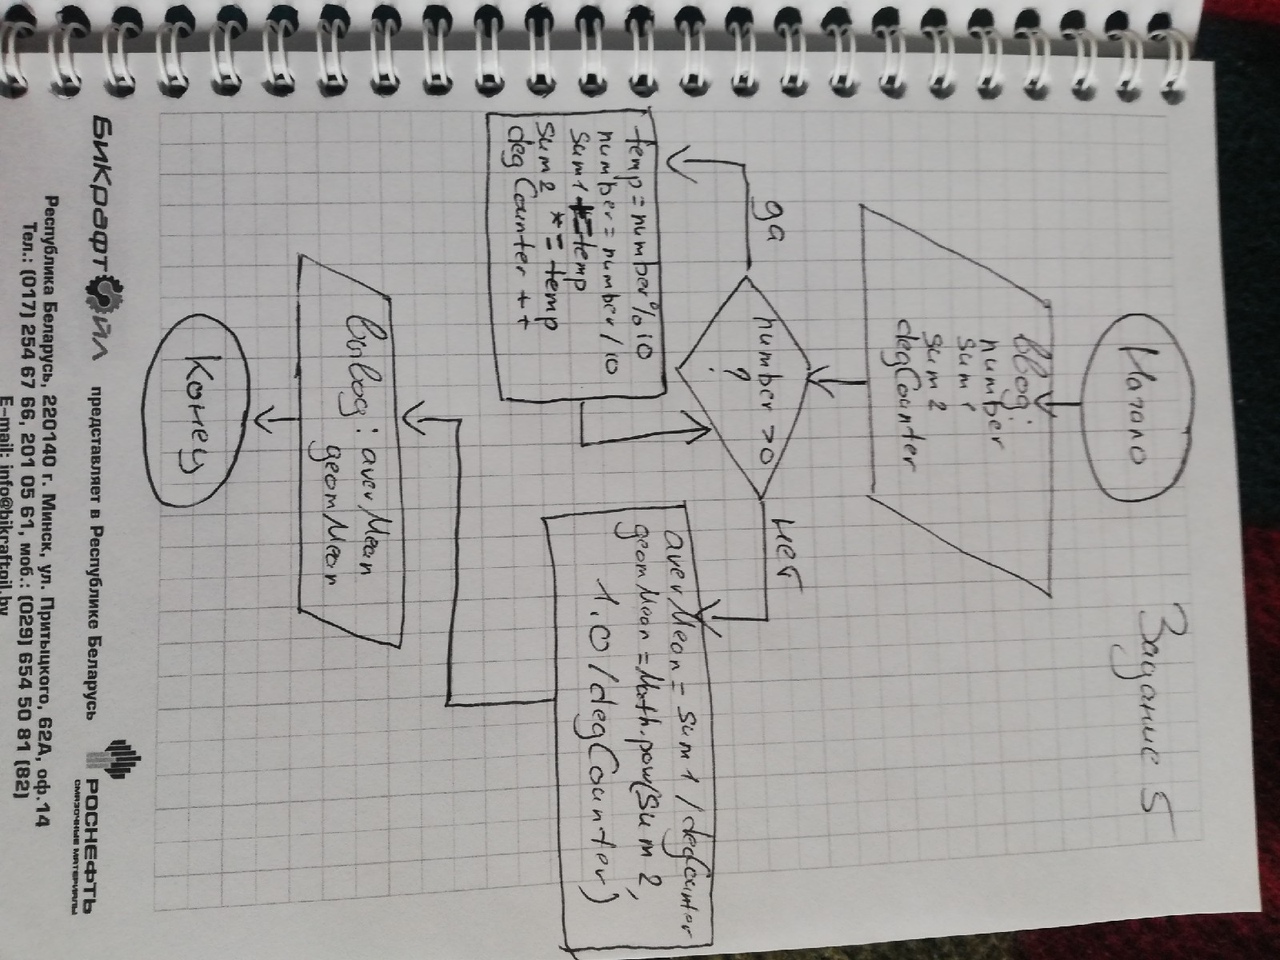 Задание 5
Начало
ввод:
number
sum1
sum2
degCounter
number >0
?
да
нет
temp=number%10
number=number/10
sum1 +=temp
sum2 *= temp
degCounter ++
averMean = sum1 / degCounter
geomMean = Math.pow(sum2,
1.0/degCounter)
вывод: averMean
geomMean
Конец
БиКрафт Ойл
представляет в Республике Беларусь
РОСНЕФТЬ
СМАЗОЧНЫЕ МАТЕРИАЛЫ
Республика Беларусь, 220140 г. Минск, ул. Притыцкого, 62А, оф.14
Тел.: (017) 254 67 66, 201 05 61, моб.: (029) 654 50 81 (82)
E-mail: info@bikraftoil.by